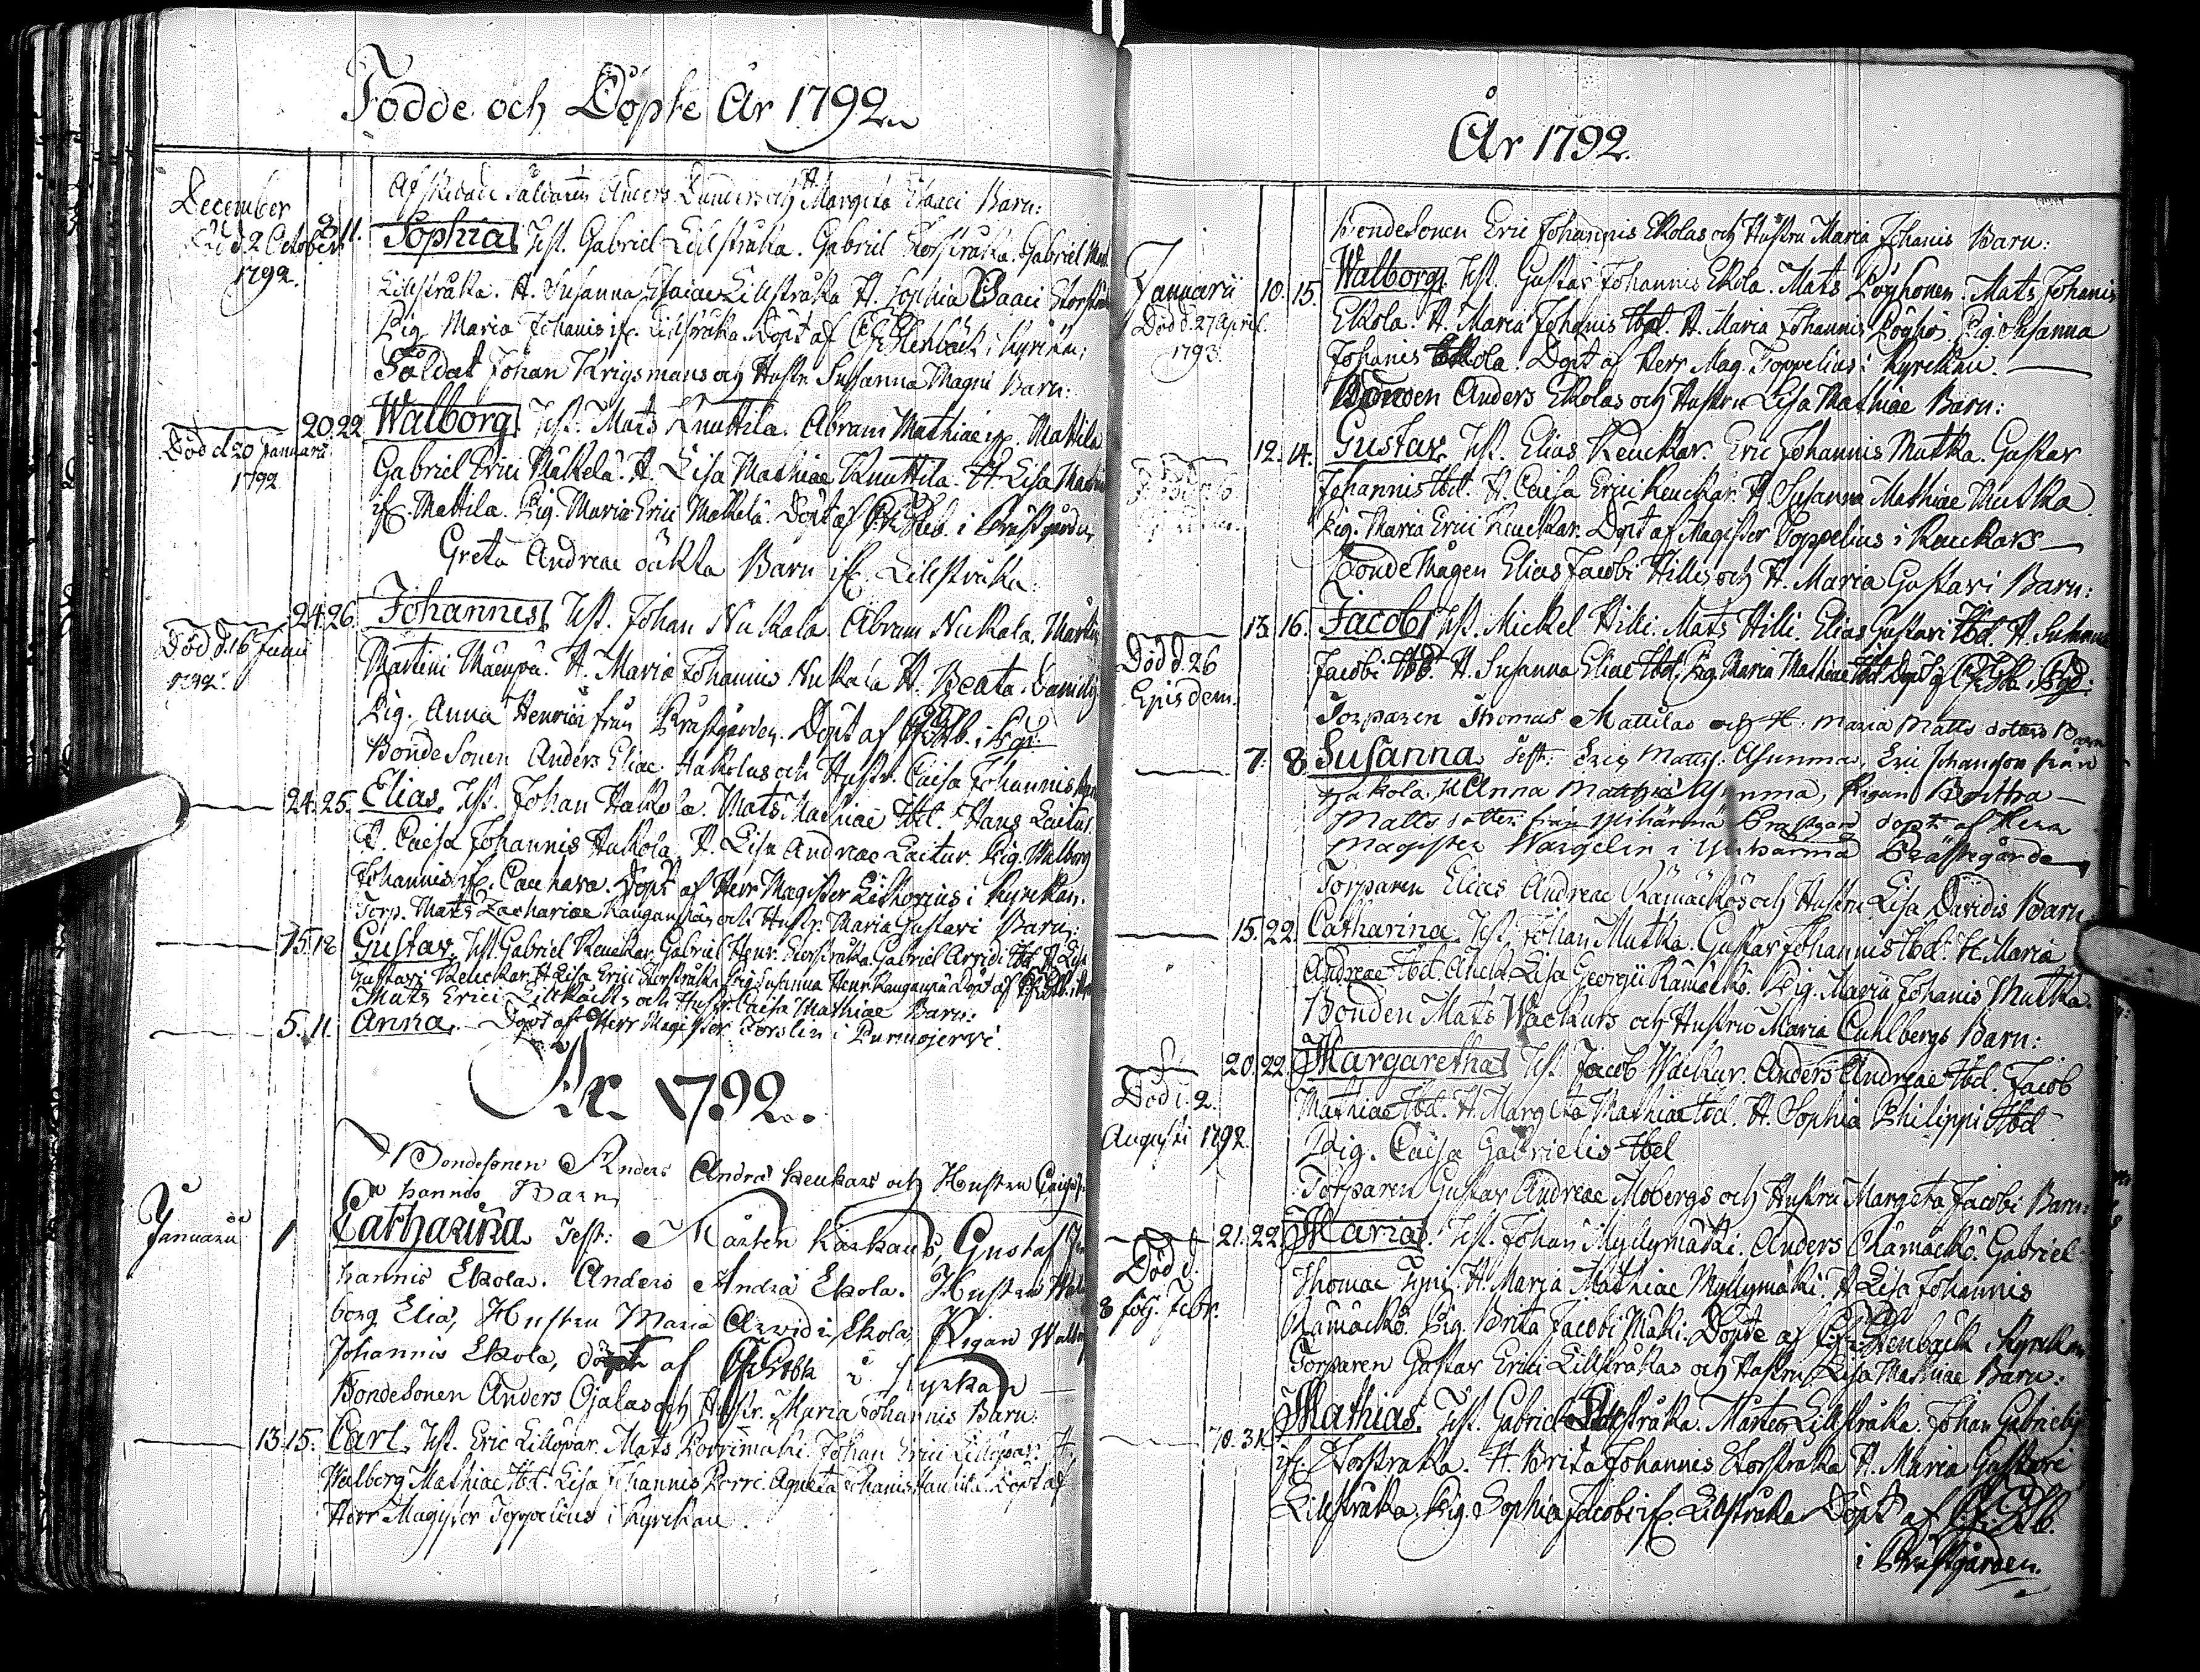 Födde och Döpte År 1792
Afskedade Soldaten Anders Dunders och H. Margeta Isaaci Barn:
December 9. 11. Sophia Test. Gabriel Lillstråka. Gabriel Storstråka. Gabriel
Död d. 2 October
1792.
Lillstråka. H. Susanna Esaiae Lillstråka H. Sophia Isaaci
Pig. Maria Johanis if. Lillstråka. Döpt af i Kyrkan:
Soldat Johan Krigsmans och Hustr. Susanna Magni Barn:
20. 22. Walborg. Test. Mats Knuttila. Abram Mathiae if. Mattila
Död d. 20 Januarii
1792
Gabriel Erici Mäkelä. H. Lisa Mathiae Knuttila. H. Lisa
if. Mattila. Pig. Maria Erici Mäkelä. Döpt af i Prästgården,
Greta Andreae oäkta Barn if. Lillstråka.
24. 26. Johannes, Test. Johan Nukala. Abram Nukala.
Död d. 16 Junii
1792.
Martini Mäenpä. H. Maria Johannis Nukala H. Beata
Pig. Anna Henrici från Prästgården. Döpt af
BondeSonen Anders Eliae Hakolas och Hustr. Caisa Johannis
24. 25. Elias, Test. Johan Hakola. Mats Mathiae Ibd. Hans Laitur.
H. Caisa Johannis Hakola. H. Lisa Andreae Laitur. Pig. Walborg
Johannis if. Döpt af Herr Magister Lithovius i Kyrckan.
Torp. Mats Zachariae Kangaspää och Hustr. Maria Gustavi Barn:
15. 18. Gustav, Test. Gabriel Keuckar. Gabriel Henr. Storstråka. Gabriel Arvidi Ibd.
Gustavi Keuckar. H. Lisa Erici Storstråka. Pig. Susanna Henr. Kangaspä Döpt af
Mats Erici och Hustr. Caisa Mathiae Barn:
5. 11. Anna, Döpt af Herr Magister Forslin i Purmojerfvi.
År 1792.
Bondesonen Anders Andrä Keukars och Hustru
hannis Barn
Januarii 1 Catharina Test: Mårten Karhaus, Gustaf
hannis Ekola. Anders Andrä Ekola. Hustru
borg Eliä, Hustru Maria Arvidi Ekola, Pigan
Johannis Ekola, döpt af i kyrkan
BondeSonen Anders Ojalas och Hustr. Maria Johannis Barn:
13. 15. Carl, Test. Eric Lillqvar. Mats Porrimäki. Johan Erici Lillqvar. H.
Walborg Mathiae Ibd. Lisa Johannis Porri. Agneta Johanis Döpt af
Herr Magister Toppelius i Kyrckan.
År 1792.
BondeSonen Eric Johannis Ekolas och Hustru Maria Johanis Barn:
Januarii 10. 15. Walborg, Test. Gustav Johannis Ekola. Mats Pöyhönen. Mats Johanis
Död d. 27 April.
1793.
Ekola. H. Maria Johanis Ibd. H. Maria Johannis Pöyhö. Pig. Susanna
Johanis Ekola. Döpt af Herr Mag. Toppelius i Kyrckan.
Bonden Anders Ekolas och Hustru Lisa Mathiae Barn:
12. 14. Gustav, Test. Elias Keuckar. Eric Johannis Mutka. Gustav
Johannis Ibd. H. Caisa Erici Keuckar. H. Susanna Mathiae Mutka.
Pig. Maria Erici Keuckar. Döpt af Magister Toppelius i Keuckars
BondeMågen Elias Jacobi Hillis och H. Maria Gustavi Barn:
13. 16. Jacob, Test. Mickel Hilli. Mats Hilli. Elias Gustavi Ibd. H.
Död d. 26
Ejusdem.
Jacobi Ibd. H. Susanna Eliae Ibd. Pig. Maria Mathiae Ibd. Döpt af
Torparen Thomas Mattilas och H: Maria Matts doters Barn
7. 8 Susanna Test: Eric Matts. Asunma, Eric Johansson från
Hakola, H Anna Asunma, Pigan Brittha
Matts dotter från Ylihärmä Prästgård döpt af Herr
Magister Wargelin i Ylihärmä Prästegård
Torparen Elias Andreae Rämäckös och Hustru Lisa Davidis Barn
15. 22. Catharina Test. Johan Mutka. Gustav Johannis Ibd. H. Maria
Andreae Ibd. Lisa Georgii Rämäckö. Pig. Maria Johanis Mutka.
Bonden Mats Wackurs och Hustru Maria Cahlbergs Barn:
20. 22. Margaretha, Test. Jacob Wackur. Anders Andreae Ibd. Jacob
Död d. 2.
Augusti 1792.
Mathiae Ibd. H. Margeta Mathiae Ibd. H. Sophia Philippi Ibd
Pig. Caisa Gabrielis Ibd
Torparen Gustav Andreae Mobergs och Hustru Margeta Jacobi Barn:
21. 22. Maria, Test. Johan Myllymäki. Anders Rämäckö. Gabriel
Död d.
8 följ. Febr.
Thomae Timi. H. Maria Mathiae Myllymäki. H. Lisa Johannis
Rämäckö. Pig. Brita Jacobi Mäki. Döpte af i Kyrckan
Torparen Gustav Erici Lillstråkas och Hustru Lisa Mathiae Barn:
30. 31. Mathias, Test. Gabriel Lillstråka. Mårten Lillstråka. Johan Gabrielis
if. Storstråka. H. Brita Johannis Storstråka H. Maria Gustavi
Lillstråka. Pig. Sophia Jacobi if. Lillstråka Döpt af
i Prästgården.